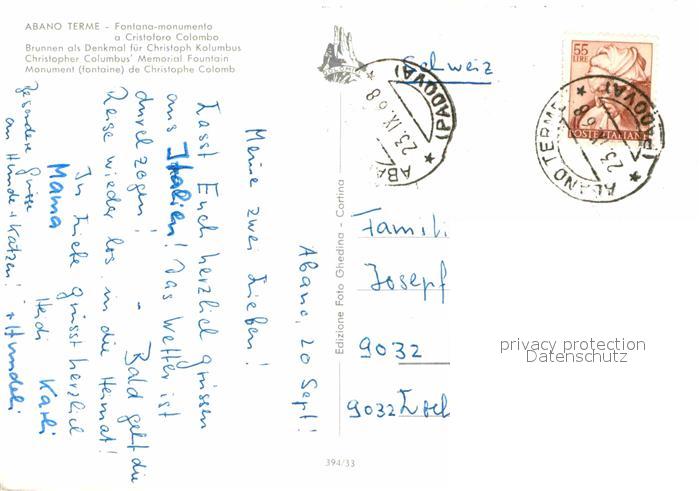 ABANO TERME - Fontana-monumento
a Cristoforo Colombo
Brunnen als Denkmal für Christoph Kolumbus
Christopher Columbus' Memorial Fountain
Monument (fontaine) de Christophe Colomb
Abano, 20 Sept!
Meine zwei Lieben!
Lasst Euch herzlich grüssen
aus Italien! Das Wetter ist
durchzogen! - Bald geht die
Reise wieder los, in die Heimat!
In Liebe grüsst herzlich
Mama Heidi Karli
Besondere Grüsse + Hundeli
an Hunde + Katzen!
Edizione Foto Ghedina - Cortina
394/33
Schweiz
55
LIRE
POSTE ITALIANE
ABANO TERME (PADOVA)
23.IX.68
ABA (PADOVA)
23.IX.68
Famili
Josef
9032
9032
privacy protection
Datenschutz